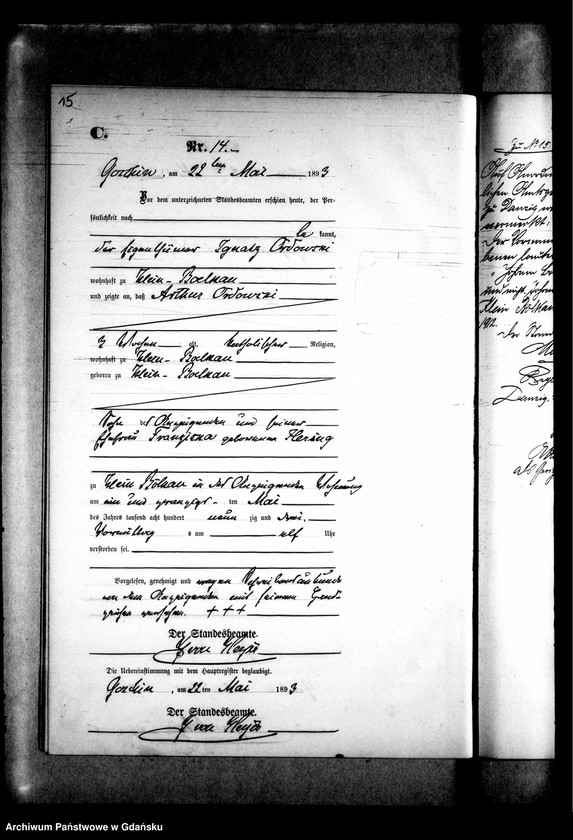 15
C.
Nr. 14.
am 22ten Mai 1893
Vor dem unterzeichneten Standesbeamten erschien heute, der Per-
sönlichkeit nach
be kannt,
der Eigenthümer Ignatz Ordowski
wohnhaft zu Klein-Boelkau
und zeigte an, daß Arthur Ordowski
3 Wochen alt, katholischer Religion,
wohnhaft zu Klein-Boelkau
geboren zu Klein-Boelkau
Sohn des Anzeigenden und seiner
Ehefrau Franziska geborenen Hering
zu Klein Bölkau in des Anzeigenden Wohnung
am ein und zwanzigs- ten Mai
des Jahres tausend acht hundert neun zig und drei
Vormittags um elf Uhr
verstorben sei.
Vorgelesen, genehmigt und wegen Schreibensunkunde
von dem Anzeigenden mit seinem Hand-
zeichen versehen. +++
Der Standesbeamte.
von Heyer
Die Uebereinstimmung mit dem Hauptregister beglaubigt.
am 22ten Mai 1893
Der Standesbeamte.
von Heyer
Zu No 15
zu Danzig
vermerkt:
Johann
Klein Bölkau
1912.
Danzig,
Archiwum Państwowe w Gdańsku